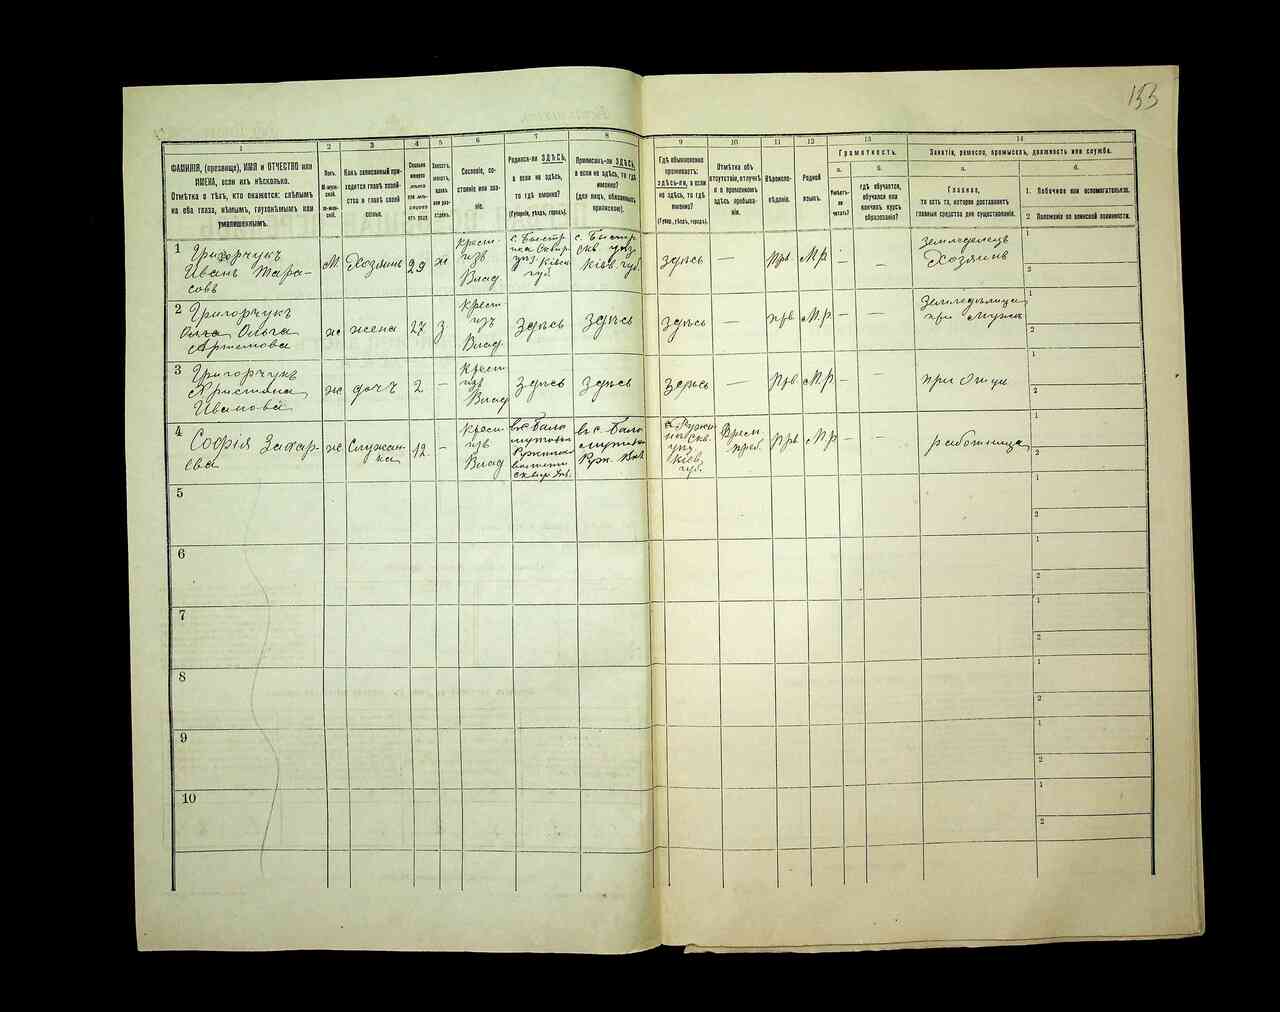 153
1
2
3
4
5
6
7
8
9
10
11
12
13
14
ФАМИЛІЯ, (прозвище), ИМЯ и ОТЧЕСТВО или
ИМЕНА, если ихъ нѣсколько.
Отмѣтка о тѣхъ, кто окажется: слѣпымъ
на оба глаза, нѣмымъ, глухонѣмымъ или
умалишеннымъ.
Полъ.
М-муж-
ской.
Ж-жен-
скій.
Какъ записанный при-
ходится главѣ хозяй-
ства и главѣ своей
семьи.
Сословіе, со-
стояніе или зва-
ніе.
Родился-ли ЗДѢСЬ,
а если не здѣсь,
то гдѣ именно?
(Губернія, уѣздъ, городъ).
Приписанъ-ли ЗДѢСЬ,
а если не здѣсь, то гдѣ
именно?
(для лицъ, обязанныхъ
припискою).
Гдѣ обыкновенно
проживаетъ:
здѣсь-ли, а если
не здѣсь, то гдѣ
именно?
(Губер., уѣздъ, городъ).
Отмѣтка объ
отсутствіи, отлучкѣ
и о временномъ
здѣсь пребыва-
ніи.
Вѣроиспо-
вѣданіе.
Родной
языкъ.
Грамотность.
а.
Умѣетъ-
ли
читать?
б.
гдѣ обучается,
обучался или
кончилъ курсъ
образованія?
Занятіе, ремесло, промыселъ, должность или служба.
а.
Главное,
то есть то, которое доставляетъ
главныя средства для существованія.
б.
1. Побочное или вспомогательное.
2 Положеніе по воинской повинности.
1 Григорчукъ
Иванъ Тара-
совъ
М Хозяинъ 29 ж
Крест.
изъ
Влад.
с. Быстр
ика Сквир.
уѣз. Кіевск.
губ.
с. Быстр
Скв уѣз.
Кіев. губ.
здѣсь — Прв М.Р. — —
Земледѣлецъ
Хозяинъ
1
2
2 Григорчукъ
Ольга Ольга
Артемова
ж жена 27 3
Крест.
изъ
Влад.
здѣсь здѣсь здѣсь — прв М.р — —
Земледѣлица
при мужѣ
1
2
3 Григорчукъ
Христина
Иванова
ж дочь 2 —
Крест
изъ
Влад
здѣсь здѣсь здѣсь — Прв. М.Р. — —
при Отцѣ
1
2
4 Софія Захар-
ева
ж Служан-
ка 12 —
Крест.
изъ
Влад
Сквир. уѣз.
Скв.
уѣз
Кіев.
губ.
Врем.
преб.
Прв М.р — —
работница
1
2
5
1
2
6
1
2
7
1
2
8
1
2
9
1
2
10
1
2